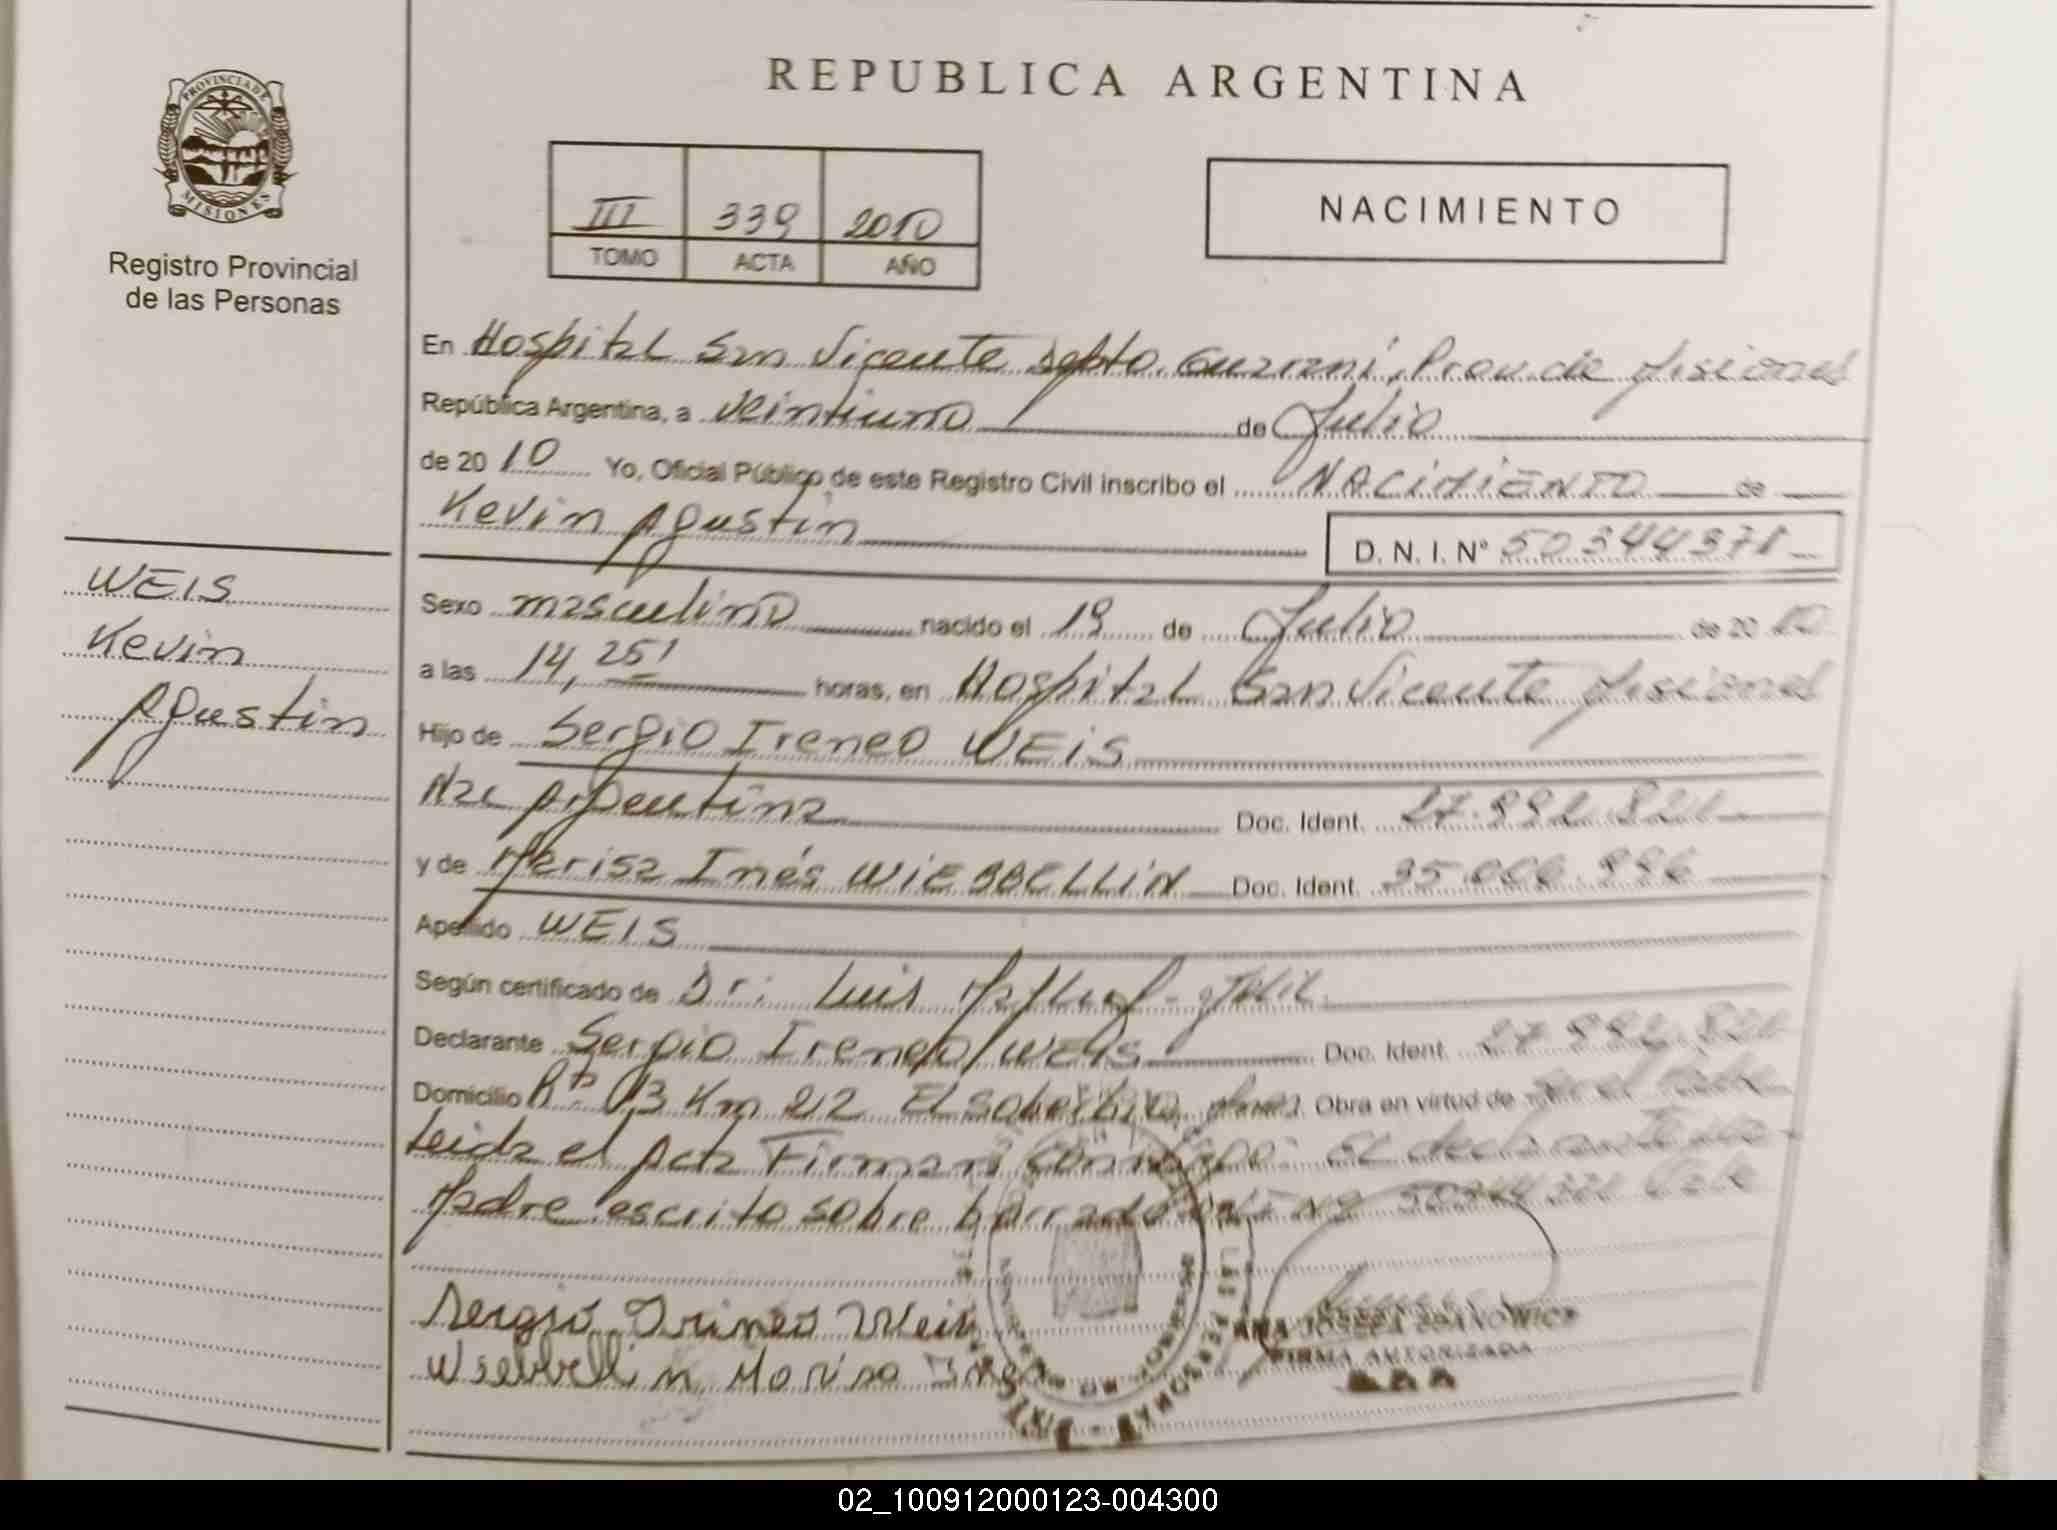 REPUBLICA ARGENTINA
PROVINCIA DE
MISIONES
Registro Provincial
de las Personas
III 339 2010
TOMO ACTA AÑO
NACIMIENTO
En Hospital San Vicente Depto. Guaraní, Prov. de Misiones
República Argentina, a veintiuno de Julio
de 2010 Yo, Oficial Público de este Registro Civil inscribo el NACIMIENTO de
Kevin Agustin
D. N. I. N° 50344371
WEIS
Kevin
Agustin
Sexo masculino nacido el 19 de Julio de 2010
a las 14,25' horas, en Hospital San Vicente Misiones
Hijo de Sergio Ireneo WEIS
Nac Argentina Doc. Ident.
y de Marisa Inés WIEBBELLIN Doc. Ident. 35.006.996
Apellido WEIS
Según certificado de Dr: Luis
Declarante Sergio Ireneo WEIS Doc. Ident.
Domicilio Rta 03 Km 212 El soberbio Mnes. Obra en virtud de
Leida el Acta Firman conmigo: El declarante
Madre escrito sobre borrado
Sergio Irineo Weis
Wiebbellin Marisa Ines
FIRMA AUTORIZADA
02_100912000123-004300